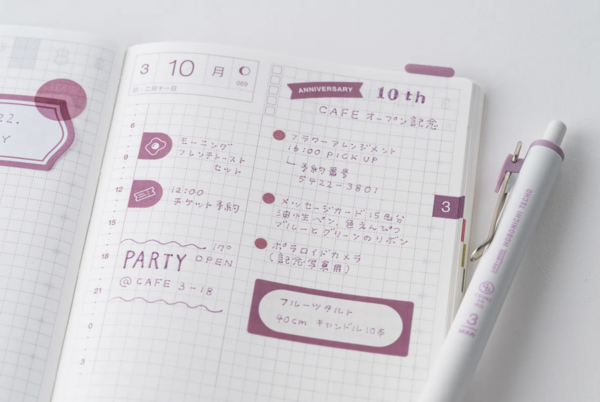 22.
Y
3 10 月
069
二月十一日
ANNIVERSARY 10th
CAFE オープン記念
6
モーニング
フレンチトースト
セット
9
12
12:00
チケット予約
15
18
17° OPEN
PARTY
@ CAFE 3-18
21
0
3
フラワーアレンジメント
16:00 PICK UP
予約番号
5422-3801
メッセージカード 15
ブルーとグリーンのリボン
ポラロイドカメラ
(記念写真用)
フルーツタルト
40cm キャンドル10本
3
3